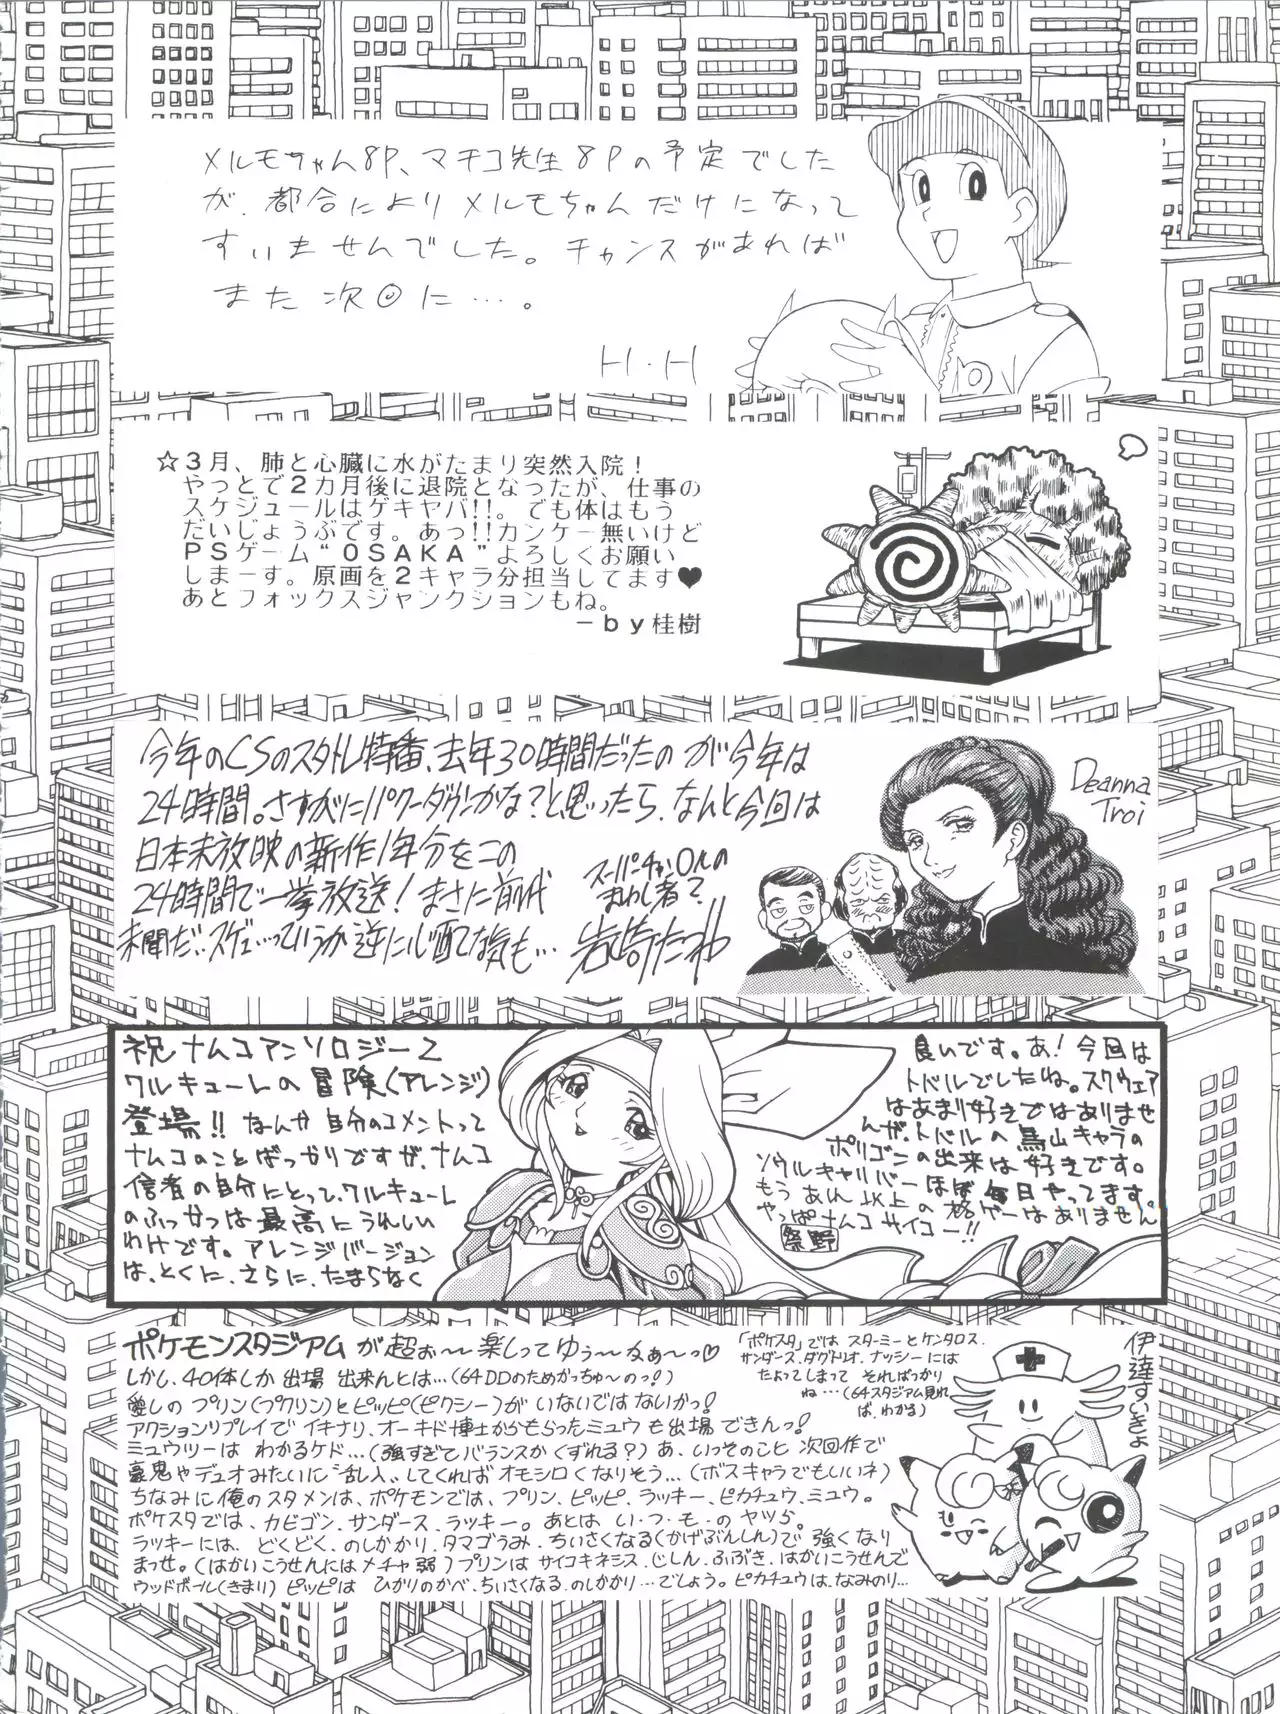 メルモちゃん8P、マチコ先生8Pの予定でした
が、都合によりメルモちゃんだけになって
すいませんでした。チャンスがあれば
また次回に…。
H・H
☆3月、肺と心臓に水がたまり突然入院!
やっとで2カ月後に退院となったが、仕事の
スケジュールはゲキヤバ!!。でも体はもう
だいじょうぶです。あっ!!カンケー無いけど
PSゲーム“OSAKA”よろしくお願い
しまーす。原画を2キャラ分担当してます♥
あとフォックスジャンクションもね。
－by桂樹
今年のCSのスタトレ特番、去年30時間だったのが今年は
24時間。さすがにパワーダウンかな?と思ったら、なんと今回は
日本未放映の新作1年分をこの
24時間で一挙放送!まさに前代
未聞だ‥スゲェ…っていうか逆に心配な気も…
スーパーチャンネルの
まわし者?
岩崎たつや
Deanna
Troi
祝ナムコアンソロジー2
ワルキューレの冒険(アレンジ)
登場!!なんか自分のコメントって
ナムコのことばっかりですが、ナムコ
信者の自分にとって、ワルキューレ
のふっかつは最高にうれしい
わけです。アレンジバージョン
は、とくに、さらに、たまらなく
良いです。あ!今回は
トバルでしたね。スクウェア
はあまり好きではありませ
んが、トバルの鳥山キャラの
ポリゴンの出来は好きです。
ソウルキャリバーはほぼ毎日やってます。
もうあれ以上の格ゲーはありません
やっぱナムコサイコー!!
祭野
ポケモンスタジアムが超ぉ〜楽しってゆぅ〜なぁ〜っ♡
しかし、40体しか出場出来んとは…(64DDのためがっちゅ〜のっ!)
愛しのプリン(プクリン)とピッピ(ピクシー)がいないではないかっ!
アクションリプレイでイキナリ、オーキド博士からもらったミュウも出場できんっ!
ミュウツーはわかるケド…(強すぎてバランスがくずれる?)あ、いっそのこと次回作で
豪鬼やデュオみたいに“乱入”してくればオモシロくなりそう…(ボスキャラでもいいネ)
ちなみに俺のスタメンは、ポケモンでは、プリン、ピッピ、ラッキー、ピカチュウ、ミュウ。
ポケスタでは、カビゴン、サンダース、ラッキー。あとはい・つ・も・のヤツら。
ラッキーには、どくどく、のしかかり、タマゴうみ、ちいさくなる(かげぶんしん)で強くなり
まっせ。(はかいこうせんにはメチャ弱)プリンはサイコキネシス、じしん、ふぶき、はかいこうせんで
ウッドボール(きまり)ピッピはひかりのかべ、ちいさくなる、のしかかり…でしょう。ピカチュウは、なみのり…
「ポケスタ」ではスターミーとケンタロス、
サンダース、ダグトリオ、ナッシーには
たよってしまってそればっかり
ね…(64スタジアム見れ
ば、わかる)
伊達すいきょ